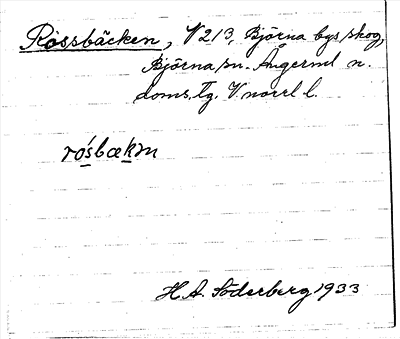 Rossbäcken, V 213, Björna bys skog,
Björna sn. Ångerml n.
doms. Tg. V. norrl l.
rósbækɳ
H. A. Söderberg 1933